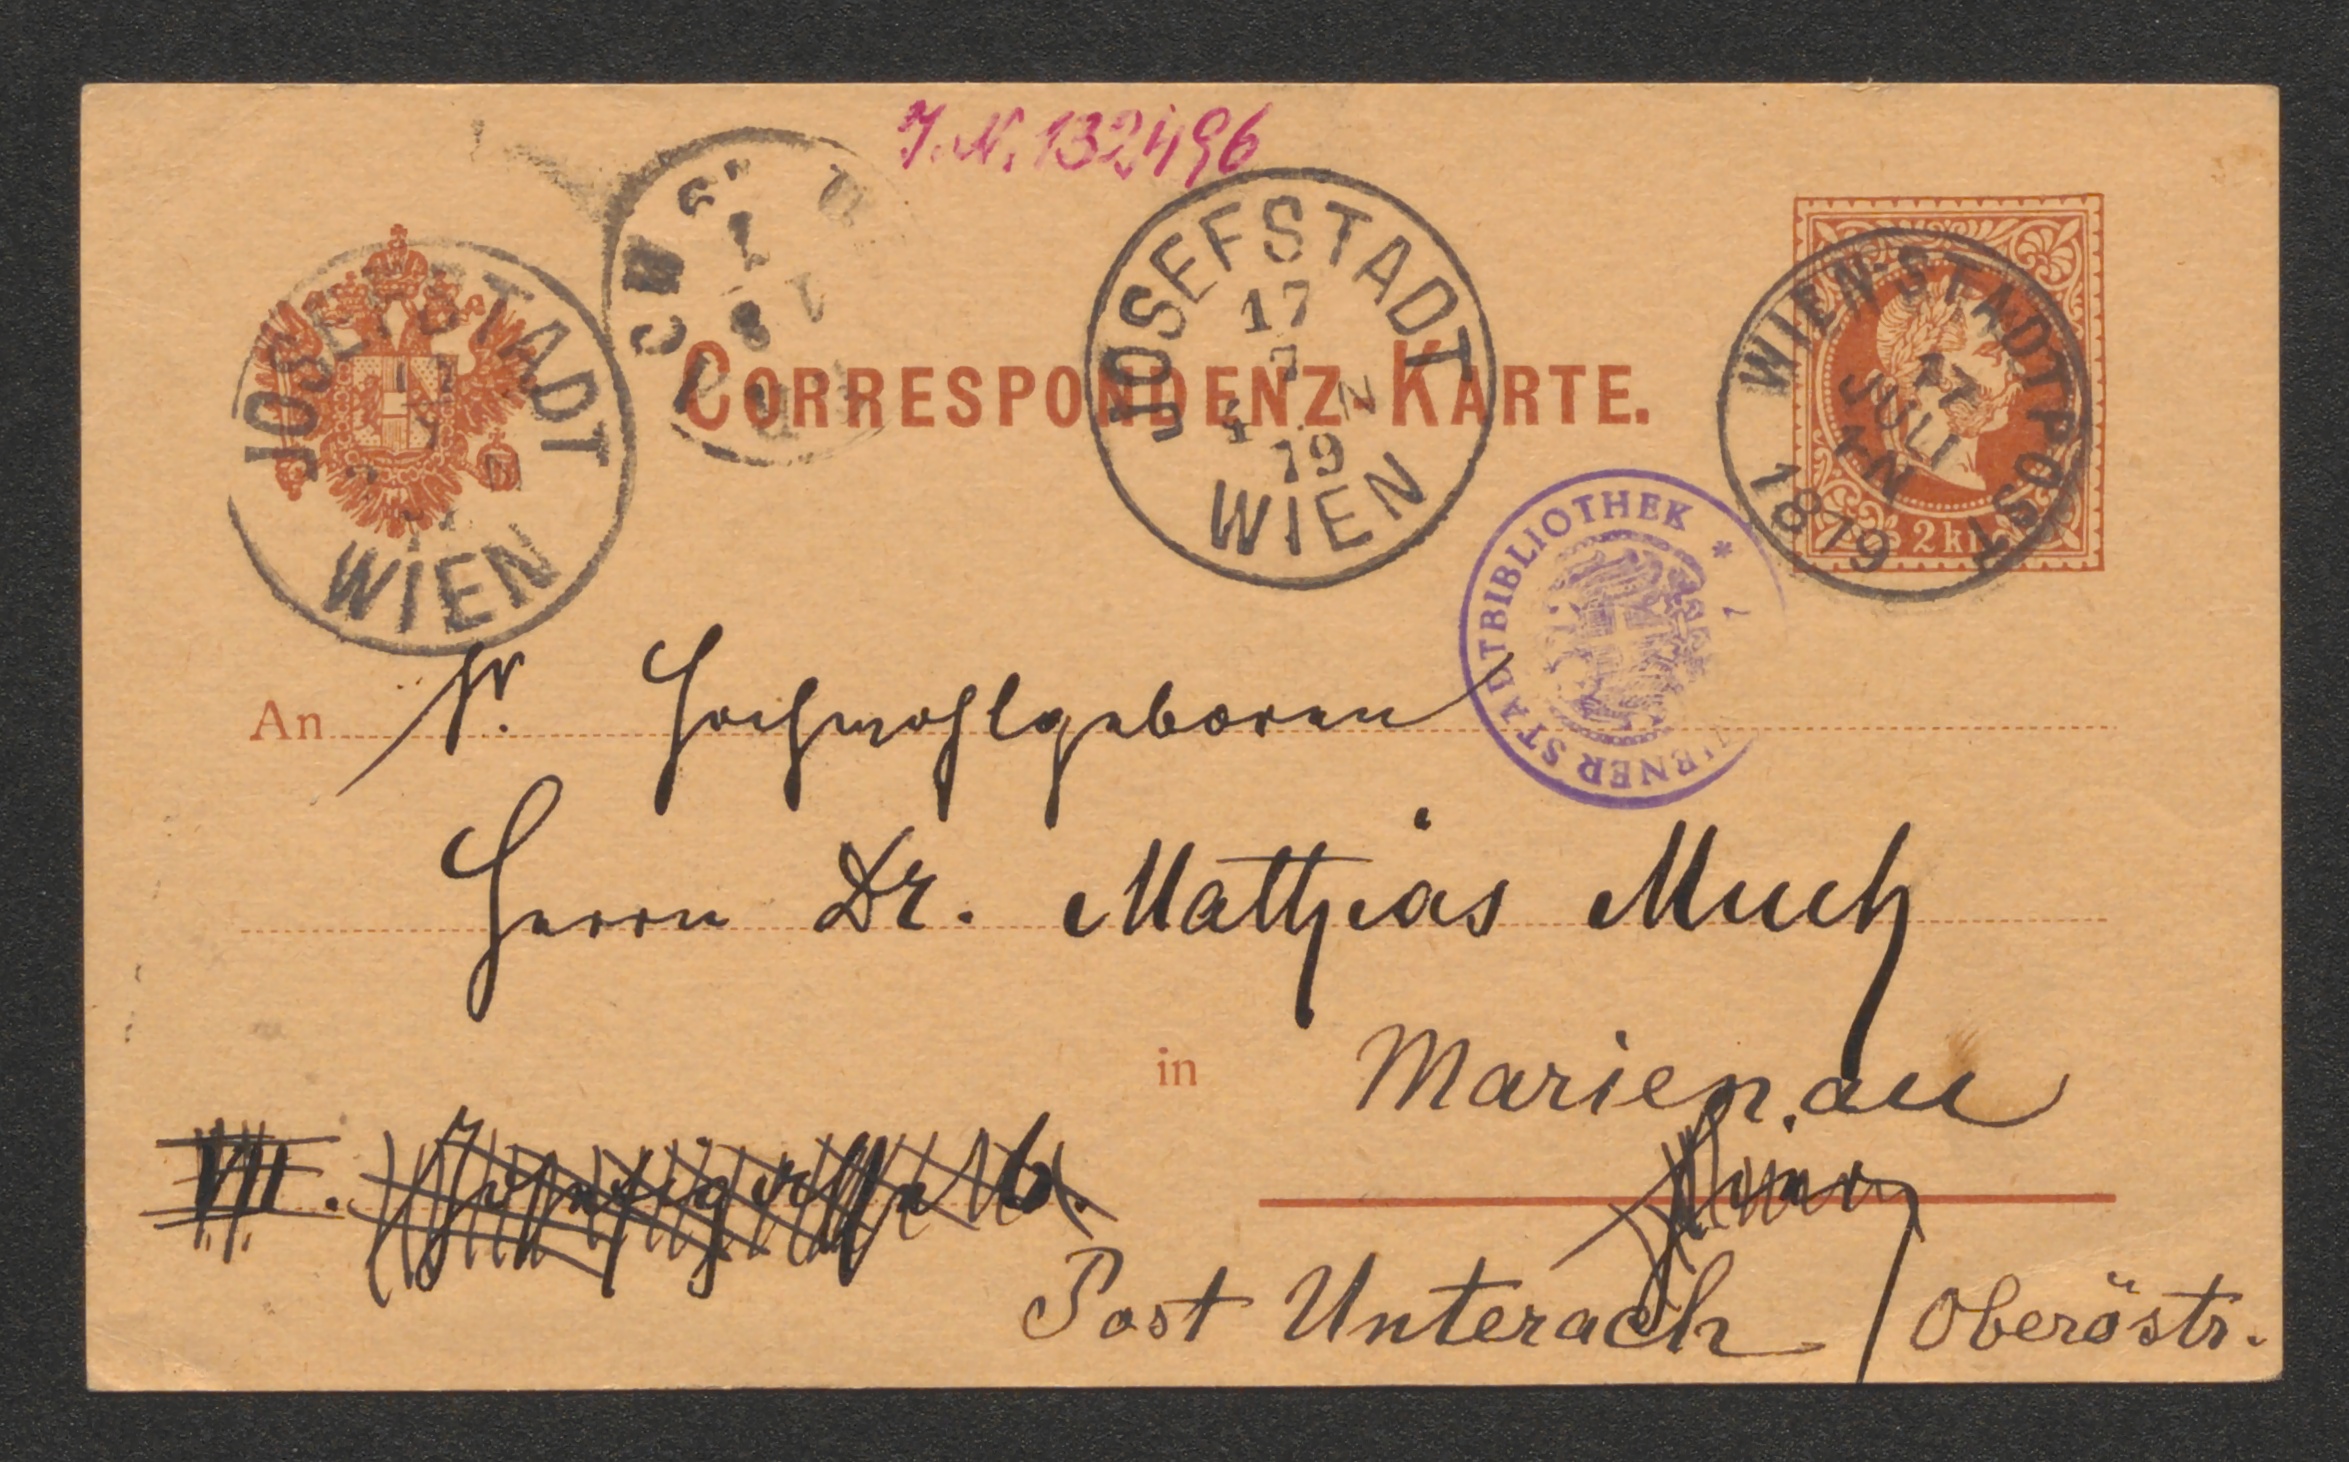 J.N. 132496
JOSEFSTADT
17
7
4 N
79
WIEN
JOSEFSTADT
17
7
WIEN
WIEN-STADTPOST
17
JULI
4 N
1879
2 kr.
CORRESPONDENZ-KARTE.
WIENER STADTBIBLIOTHEK *
An Sr. Hochwohlgeboren
Herrn Dr. Mathias Much
in Marienau
VIII. 16.
Post Unterach / Oberöstr.